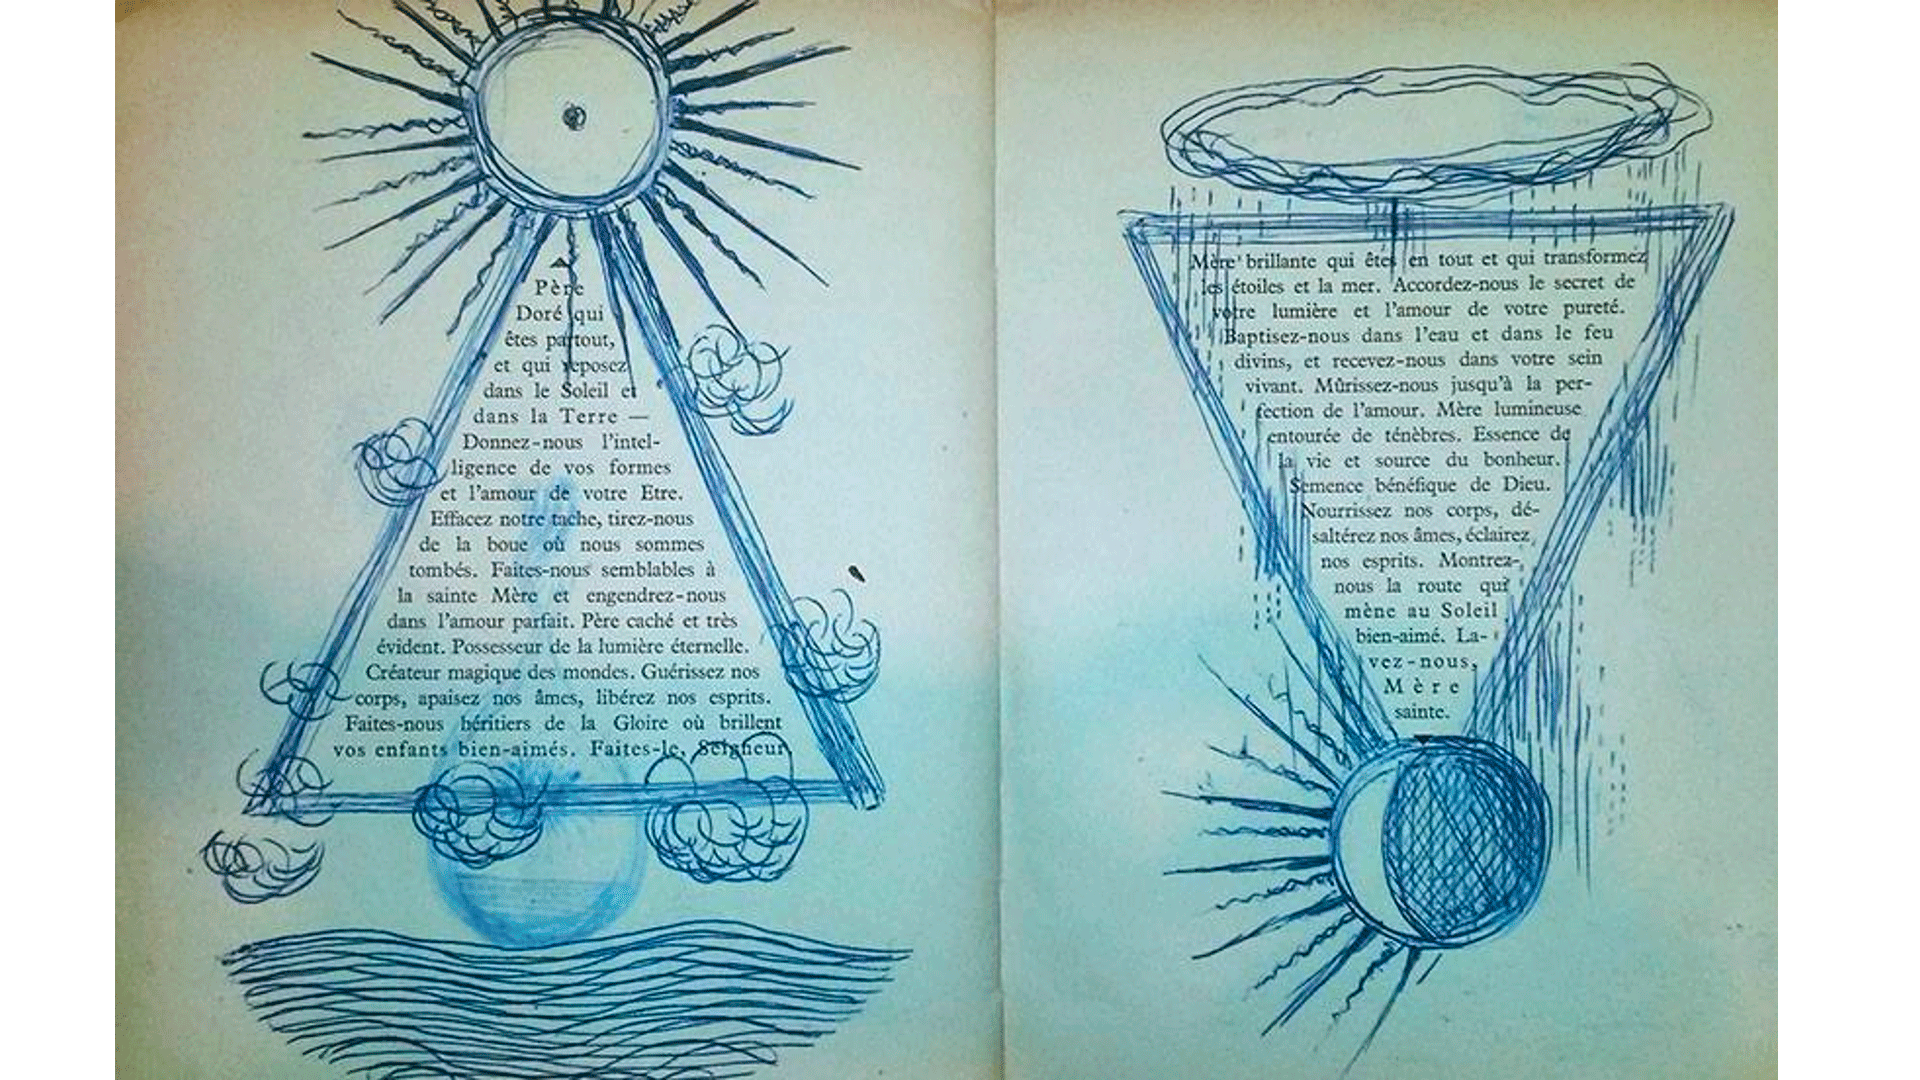 Père
Doré qui
êtes partout,
et qui reposez
dans le Soleil et
dans la Terre —
Donnez-nous l'intel-
ligence de vos formes
et l'amour de votre Etre.
Effacez notre tache, tirez-nous
de la boue où nous sommes
tombés. Faites-nous semblables à
la sainte Mère et engendrez-nous
dans l'amour parfait. Père caché et très
évident. Possesseur de la lumière éternelle.
Créateur magique des mondes. Guérissez nos
corps, apaisez nos âmes, libérez nos esprits.
Faites-nous héritiers de la Gloire où brillent
vos enfants bien-aimés. Faites-le, Seigneur.
Mère brillante qui êtes en tout et qui transformez
les étoiles et la mer. Accordez-nous le secret de
votre lumière et l'amour de votre pureté.
Baptisez-nous dans l'eau et dans le feu
divins, et recevez-nous dans votre sein
vivant. Mûrissez-nous jusqu'à la per-
fection de l'amour. Mère lumineuse
entourée de ténèbres. Essence de
la vie et source du bonheur.
Semence bénéfique de Dieu.
Nourrissez nos corps, dé-
saltérez nos âmes, éclairez
nos esprits. Montrez-
nous la route qui
mène au Soleil
bien-aimé. La-
vez-nous,
Mère
sainte.